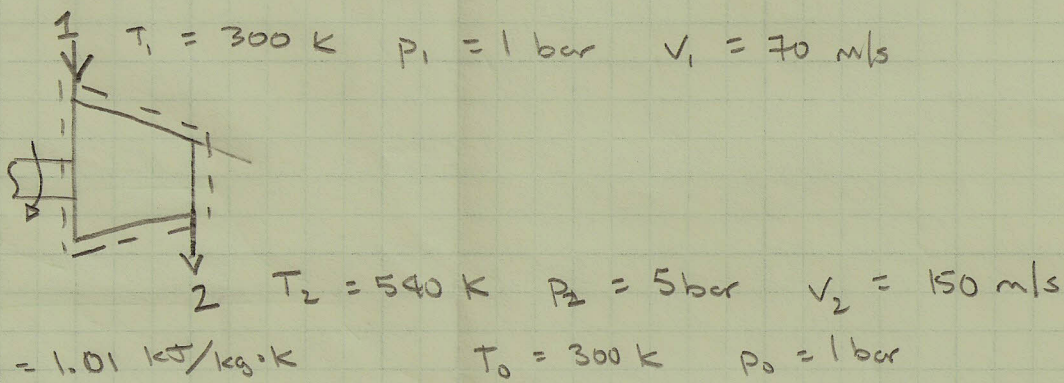 1
T₁ = 300 K p₁ = 1 bar V₁ = 70 m/s
2
T₂ = 540 K p₂ = 5 bar V₂ = 150 m/s
= 1.01 kJ/kg·K T₀ = 300 K p₀ = 1 bar